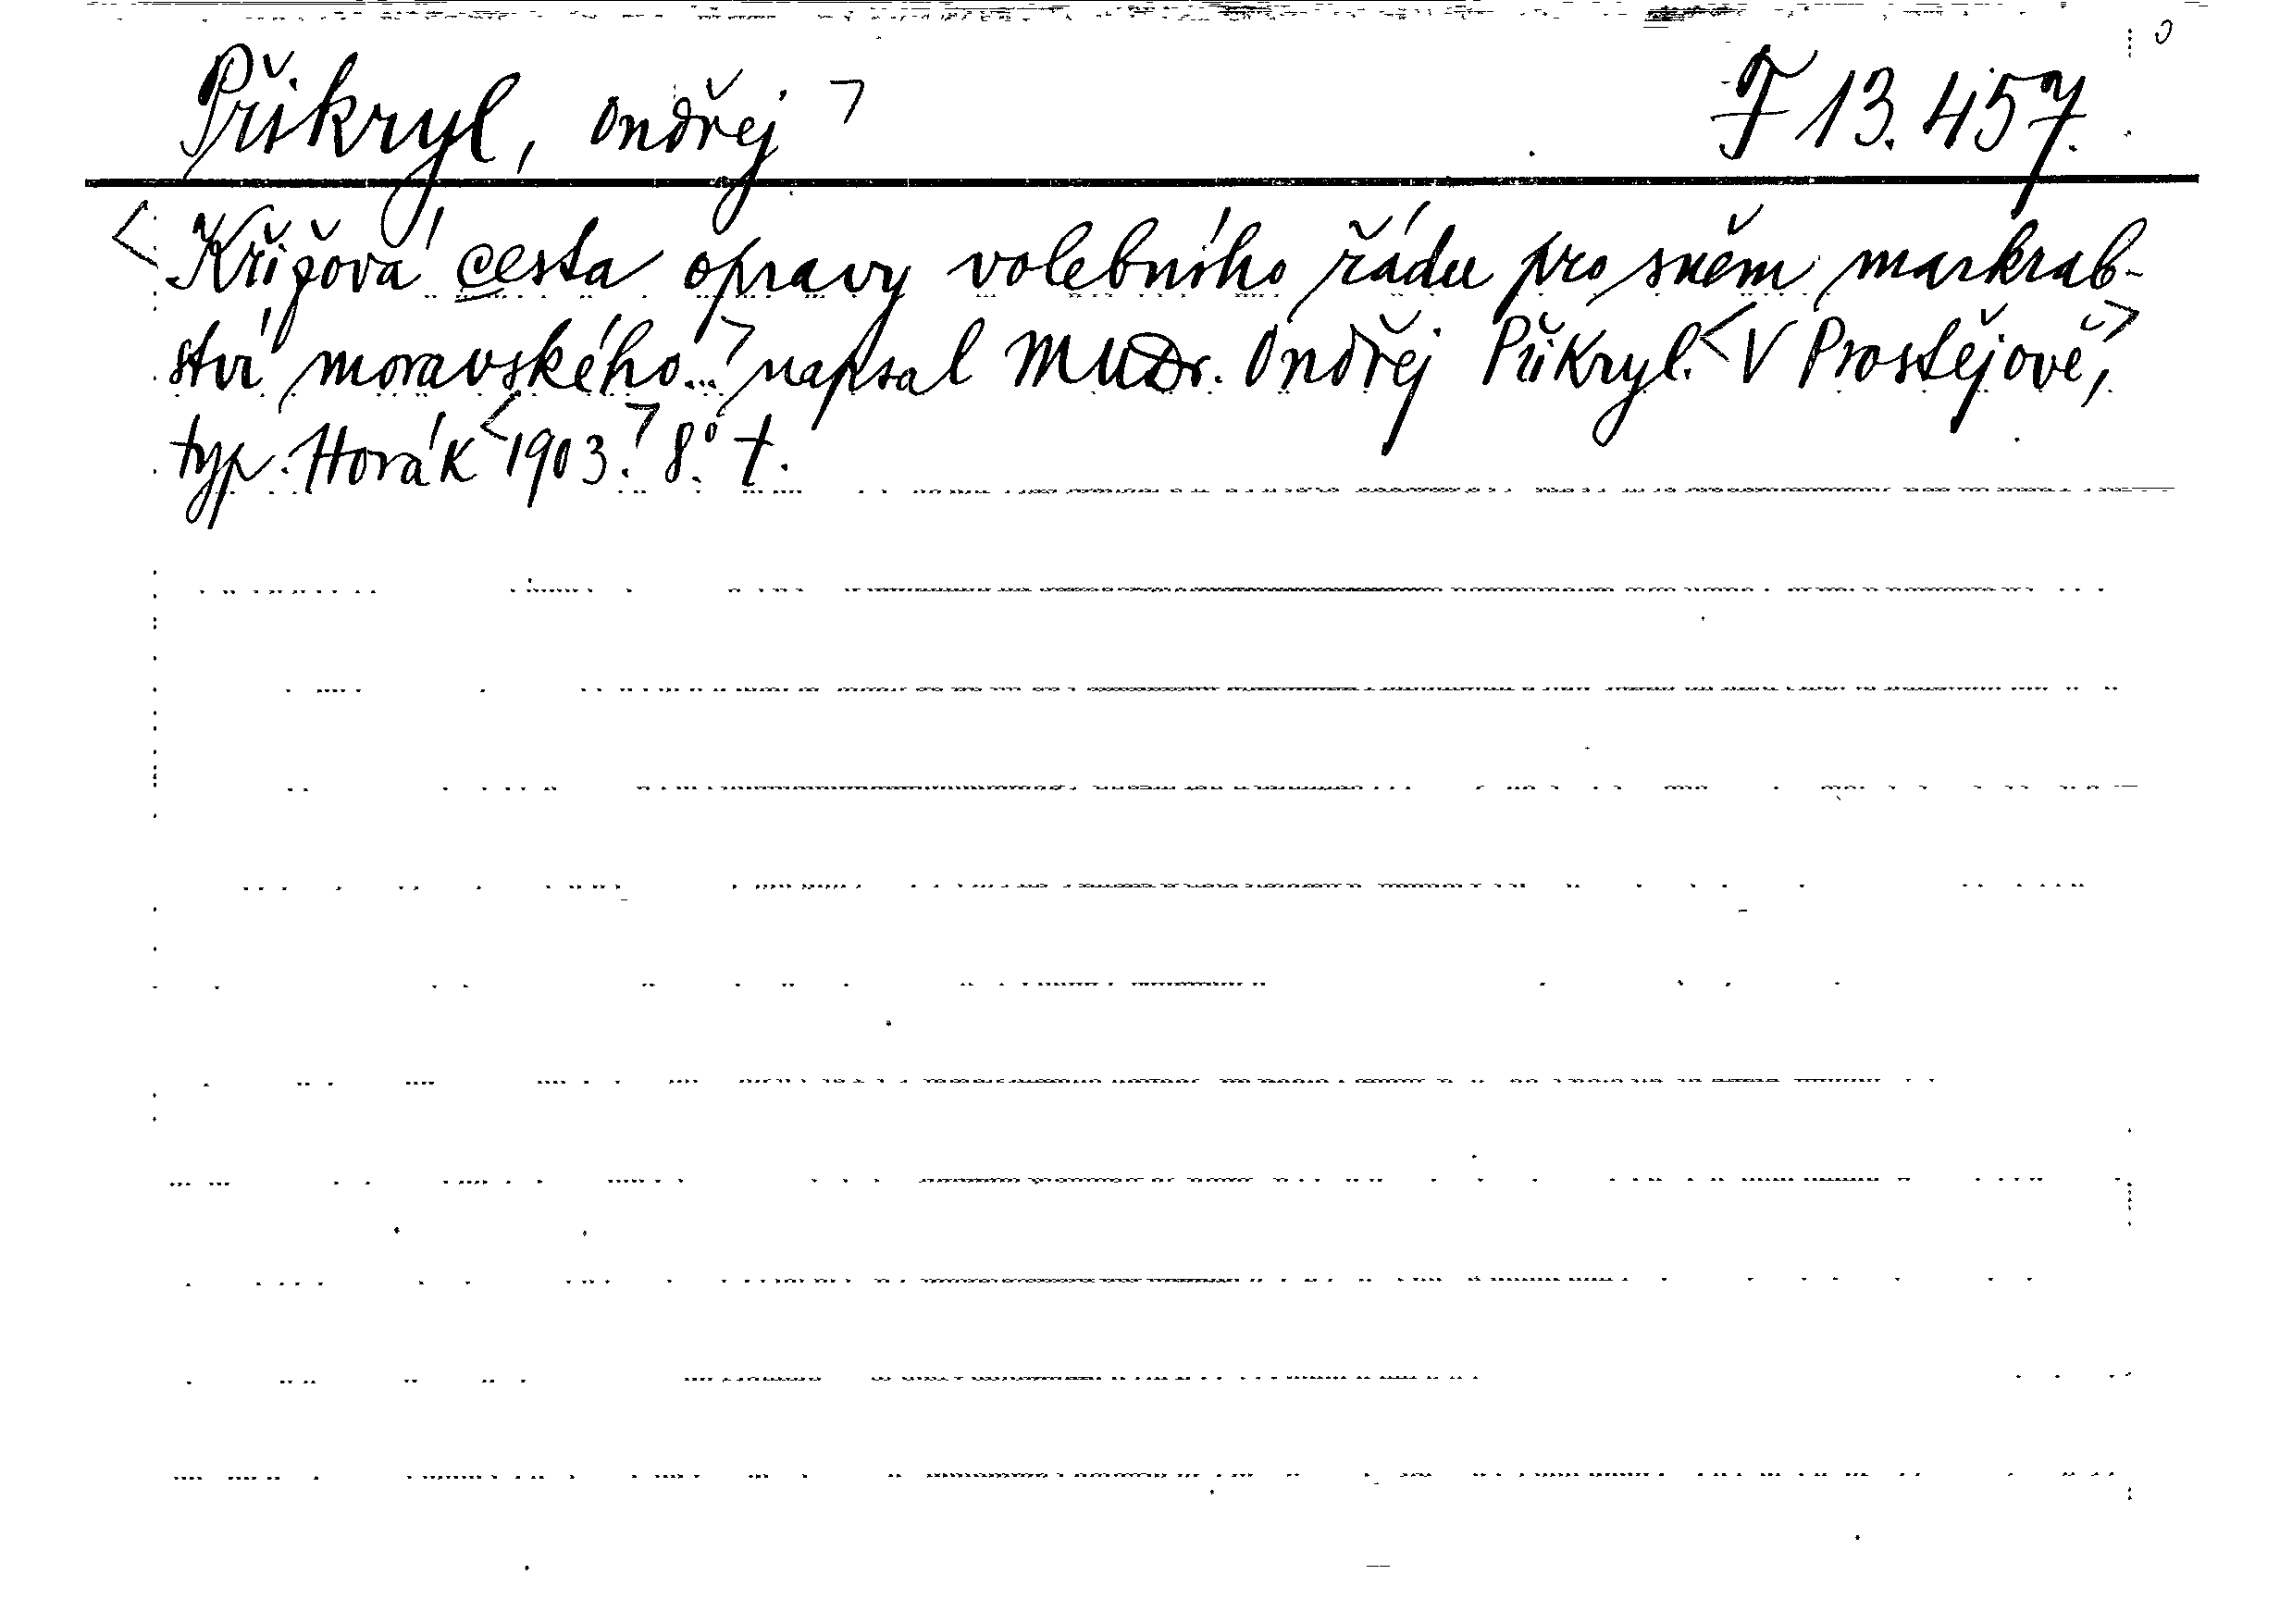 Přikryl, Ondřej ⌝ F 13.457.
<Křižová cesta opravy volebního řádu pro sněm markrab-
ství moravského...⌝ napsal MUDr. Ondřej Přikryl. <V Prostějově,⌝
typ. Horák <1903.⌝ 8.° t.